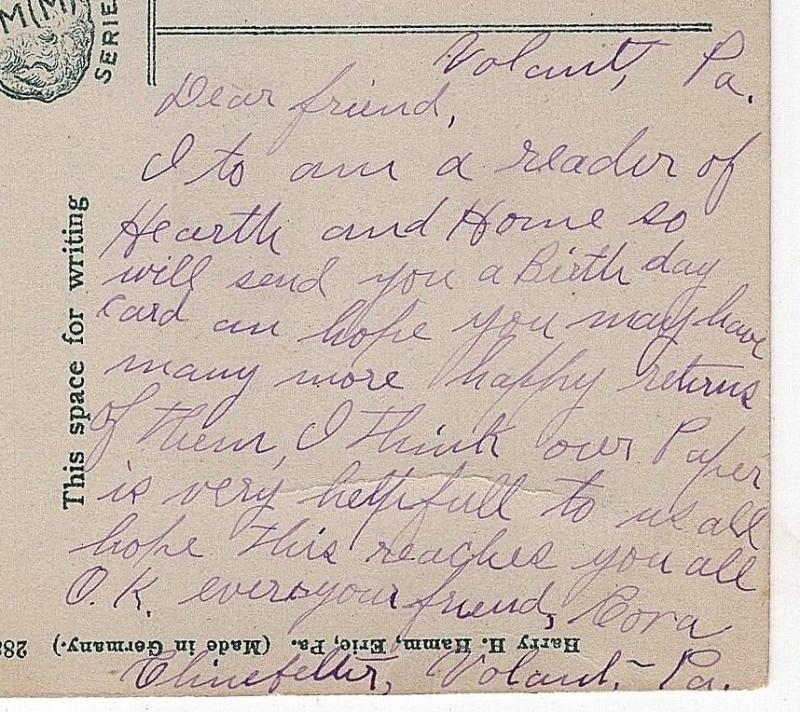 M(M)
SERIE
Volant, Pa.
Dear friend,
I to am a reader of
Hearth and Home so
will send you a Birth day
card an hope you may have
many more happy returns
of them, I think our Paper
is very helpfull to us all
hope this reaches you all
O.K. ever your friend, Cora
Clinefelter, Volant, - Pa.
This space for writing
Harry H. Hamm, Erie, Pa. (Made in Germany.) 288